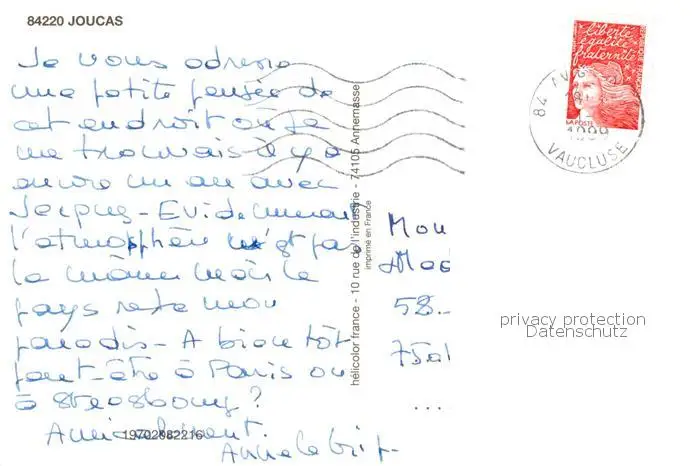 84220 JOUCAS
Je vous adresse
une petite pensée de
cet endroit où je
me trouvais il y a
encore un an avec
Jacques - Evidemment
l'atmosphère n'est pas
la même mais le
pays reste mon
paradis - A bientôt
peut-être à Paris ou
à Strasbourg ?
Amicalement.
19702082216
hélicolor france - 10 rue de l'industrie - 74105 Annemasse
imprimé en France
58
liberté
égalité
fraternité
LA POSTE
84 AVIGNON
VAUCLUSE
privacy protection
Datenschutz